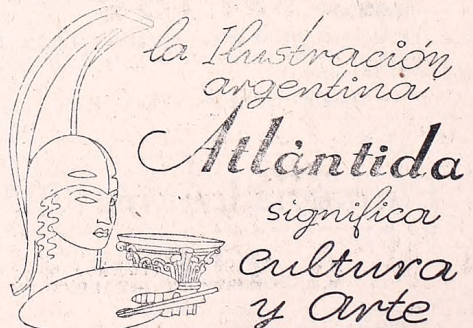 la Ilustración
argentina
Atlántida
significa
cultura
y arte